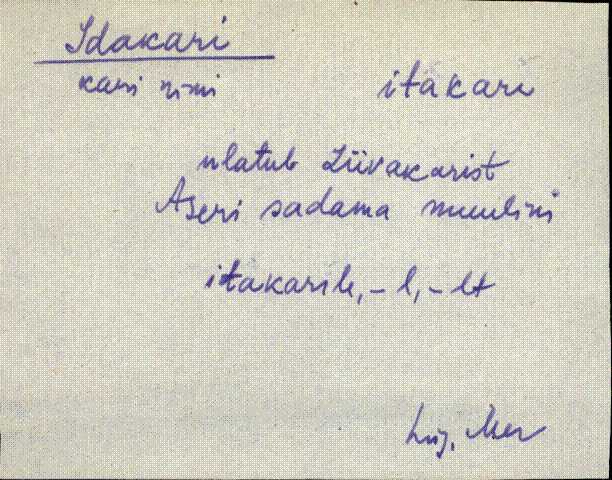 Idakari
kari nimi
itakari
ulatub Liivakarist
Aseri sadama muulini
itakarile, - l, - lt
Lüg.